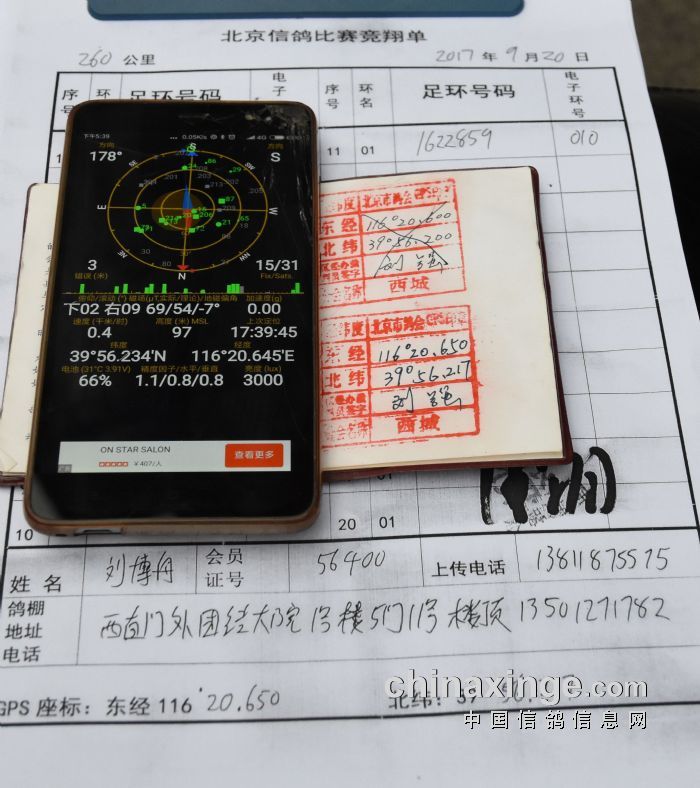 北京信鸽比赛竞翔单
260 公里
2017 年 9 月 20 日
序号 环 足环号码 电子 序号 环名 足环号码 电子环号
11 01 1622859 010
下午5:39 0.05K/s 4G
方向 178° 方向 S
S SW W NW N NE E SE
错误 (米) 3
15/31 Fix/Sats.
俯仰/滚动 (°) 磁场(µT,实际/理论)/地磁偏角 加速度(g)
下02 右09 69/54/-7° 0.00
速度 (千米/时) 高度 (米) MSL 上次定位
0.4 97 17:39:45
纬度 经度
39°56.234'N 116°20.645'E
电池 (31°C 3.91V) 精度因子/水平/垂直 亮度 (lux)
66% 1.1/0.8/0.8 3000
ON STAR SALON
¥407/人
查看更多
纬度 北京市鸽会GPS印章
东经 116°20.600
北纬 39°56.200
签字 刘
西城
纬度 北京市鸽会GPS印章
东经 116°20.650
北纬 39°56.217
签字 刘
西城
10
20 01
姓名 刘博舟 会员证号 56400 上传电话 13811875575
鸽棚地址电话 西直门外团经大院1号楼5门11号楼顶 13501271782
GPS 座标：东经 116°20.650 北纬：
chinaxinge.com
中国信鸽信息网